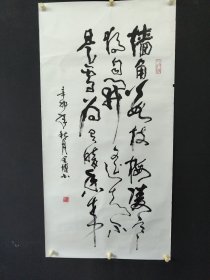 墙角数枝梅凌寒
独自开遥知不
是雪为有暗香来
辛卯年秋月
书